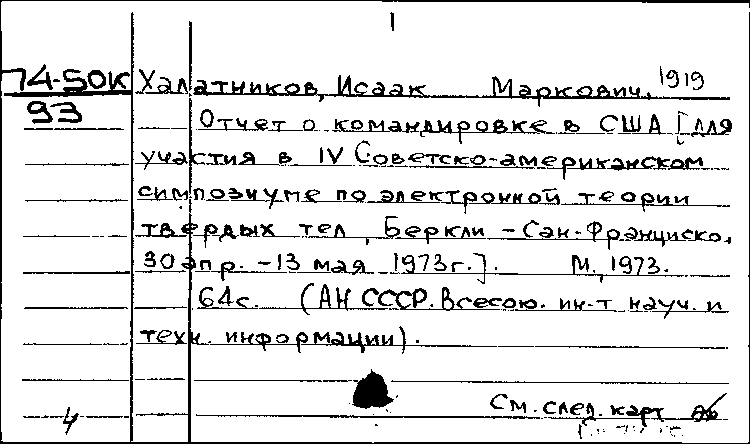 74-50к Халатников, Исаак Маркович, 1919
93
Отчет о командировке в США [для
участия в IV Советско-американском
симпозиуме по электронной теории
твердых тел, Беркли - Сан-Франциско,
30 апр. - 13 мая 1973г.]. М., 1973.
64с. (АН СССР. Всесоюз. ин-т науч. и
техн. информации).
См. след. карт
4